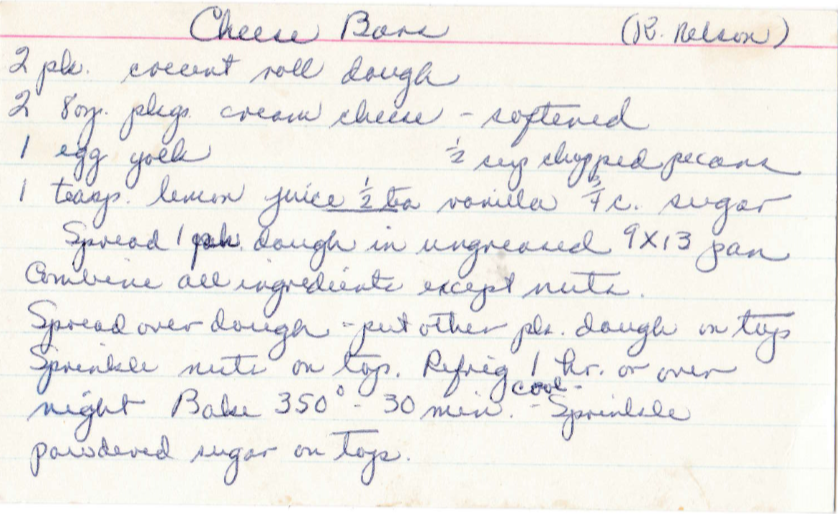 Cheese Bars (K. Nelson)
2 pk. crecent roll dough
2 8oz. pkgs. cream cheese - softened
1 egg yolk ½ cup chopped pecans
1 teasp. lemon juice ½ tea vanilla ¾ c. sugar
Spread 1 pk. dough in ungreased 9X13 pan
Combine all ingredients except nuts.
Spread over dough - put other pk. dough on top
Sprinkle nuts on top. Refrig 1 hr. or over
night Bake 350° - 30 min. - cool - Sprinkle
powdered sugar on top.